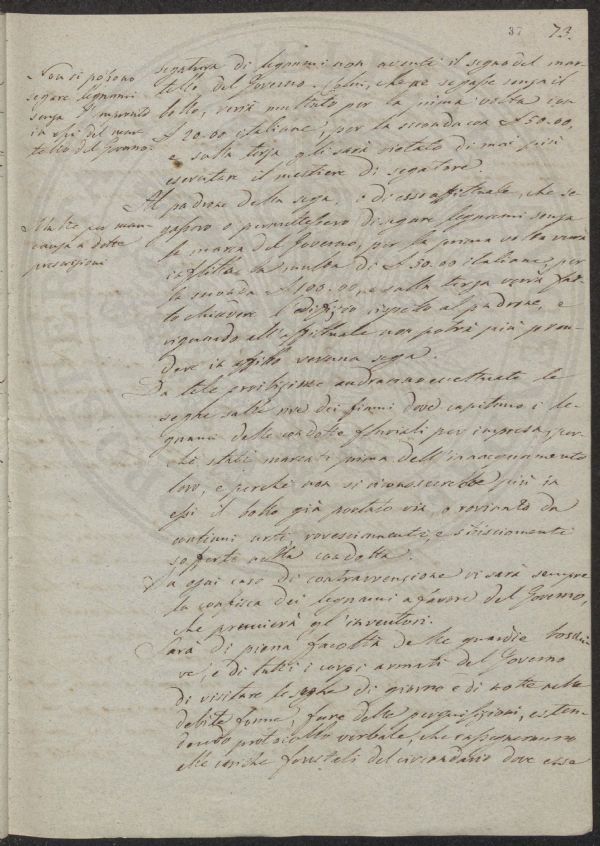 37 73.
Non si possono
segare legnami
senza l'impronto
in essi del mar-
tello del Governo.
segatura di legnami non aventi il segno del mar-
tello del Governo. Colui, che ne segasse senza il
bollo, verrà multato per la prima volta con
£ 20.00 italiane, per la seconda con £ 50.00,
e sulla terza gli sarà vietato di mai più
esercitare il mestiere di segatore.
Multe per man-
canza a dette
prescrizioni
Al padrone della sega o di esso affittuale, che se-
gassero o permettessero di segare legnami senza
la marca del Governo, per la prima volta verrà
inflitta la multa di £ 50.00 italiane, per
la seconda £ 100.00, e sulla terza verrà fat-
to chiudere l'edifizio rispetto al padrone, e
riguardo all'affittuale non potrà più pren-
dere in affitto veruna sega.
Da tale proibizione andranno eccettuate le
seghe sulle rive dei fiumi dove capitano i le-
gname delle condotte fluviali per impresa, per-
chè stati marcati prima dell'innacquamento
loro, e perchè non si riconoscerebbe più in
essi il bollo già portato via, o rovinato da
continui urti, rovesciamenti, e strisciamenti
sofferti nella condotta.
In ogni caso di contravvenzione vi sarà sempre
la confisca dei legnami a favore del Governo,
che premierà gl'inventori.
Sarà di piena facoltà delle guardie boschi-
ve, e di tutti i corpi armati del Governo
di visitare le seghe di giorno e di notte nelle
debite forme, fare delle perquisizioni, esten-
dendo protocollo verbale, che rassegneranno
alle cariche forestali del circondario dove esse